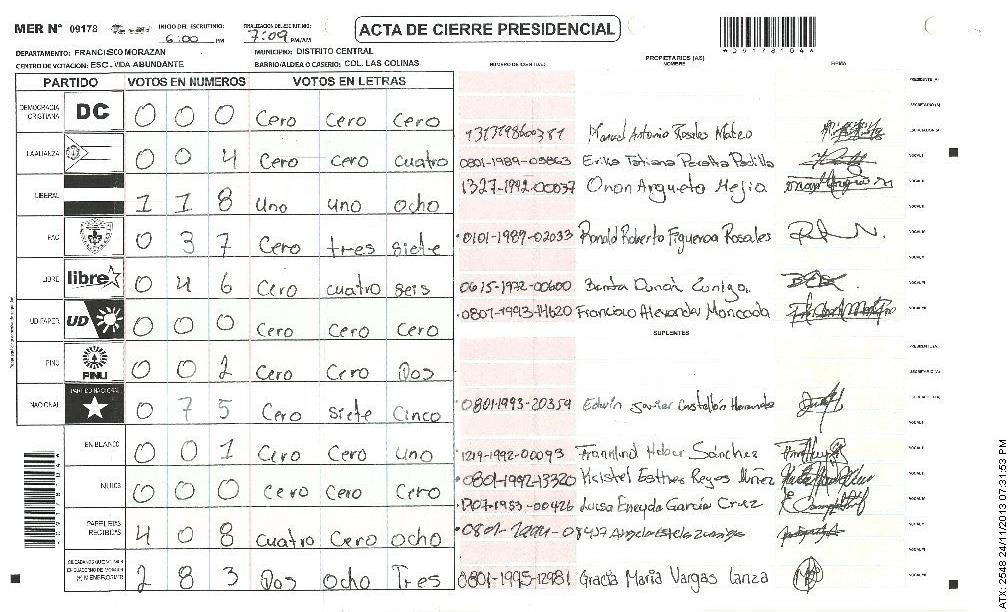 MER Nº 09178 INICIO DEL ESCRUTINIO: 6:00 PM FINALIZACION DEL ESCRUTINIO: 7:09 PM/AM ACTA DE CIERRE PRESIDENCIAL
DEPARTAMENTO: FRANCISCO MORAZAN MUNICIPIO: DISTRITO CENTRAL
CENTRO DE VOTACION: ESC. VIDA ABUNDANTE BARRIO/ALDEA O CASERIO: COL. LAS COLINAS
NUMERO DE IDENTIDAD PROPIETARIOS (AS) NOMBRE FIRMA
PARTIDO VOTOS EN NUMEROS VOTOS EN LETRAS
DEMOCRACIA CRISTIANA DC 0 0 0 Cero Cero Cero
Manuel Antonio Rosales Mateo
LA ALIANZA 0 0 4 Cero cero cuatro 0801-1989-05863 Erika Tatiana Peralta Padilla
LIBERAL 1 1 8 Uno uno ocho 1327-1992-00037 Onan Argueta Mejia
PAC 0 3 7 Cero tres siete 0101-1989-02033 Ronald Roberto Figueroa Rosales
LIBRE libre 0 4 6 Cero cuatro seis 0615-1972-00600
UD FAPER UD 0 0 0 Cero Cero Cero 0801-1993-14620 Francisco Alexander Moncada
SUPLENTES
PINU PINU 0 0 2 Cero Cero Dos
NACIONAL PARTIDO NACIONAL 0 7 5 Cero siete Cinco 0801-1993-20359 Edwin Javier Castellón
EN BLANCO 0 0 1 Cero Cero uno 1219-1992-00093 Sánchez
NULOS 0 0 0 Cero Cero Cero 0801-1992-13320 Kristel Esther Reyes Nuñez
PAPELETAS RECIBIDAS 4 0 8 cuatro Cero ocho 1707-1953-00426 Luisa Eneyda García Cruz
0801- Angela Estela Zuniga
2 8 3 Dos ocho Tres 0801-1995-12981 Gracia Maria Vargas Lanza
ATX-2548 24/11/2013 07:31:53 PM